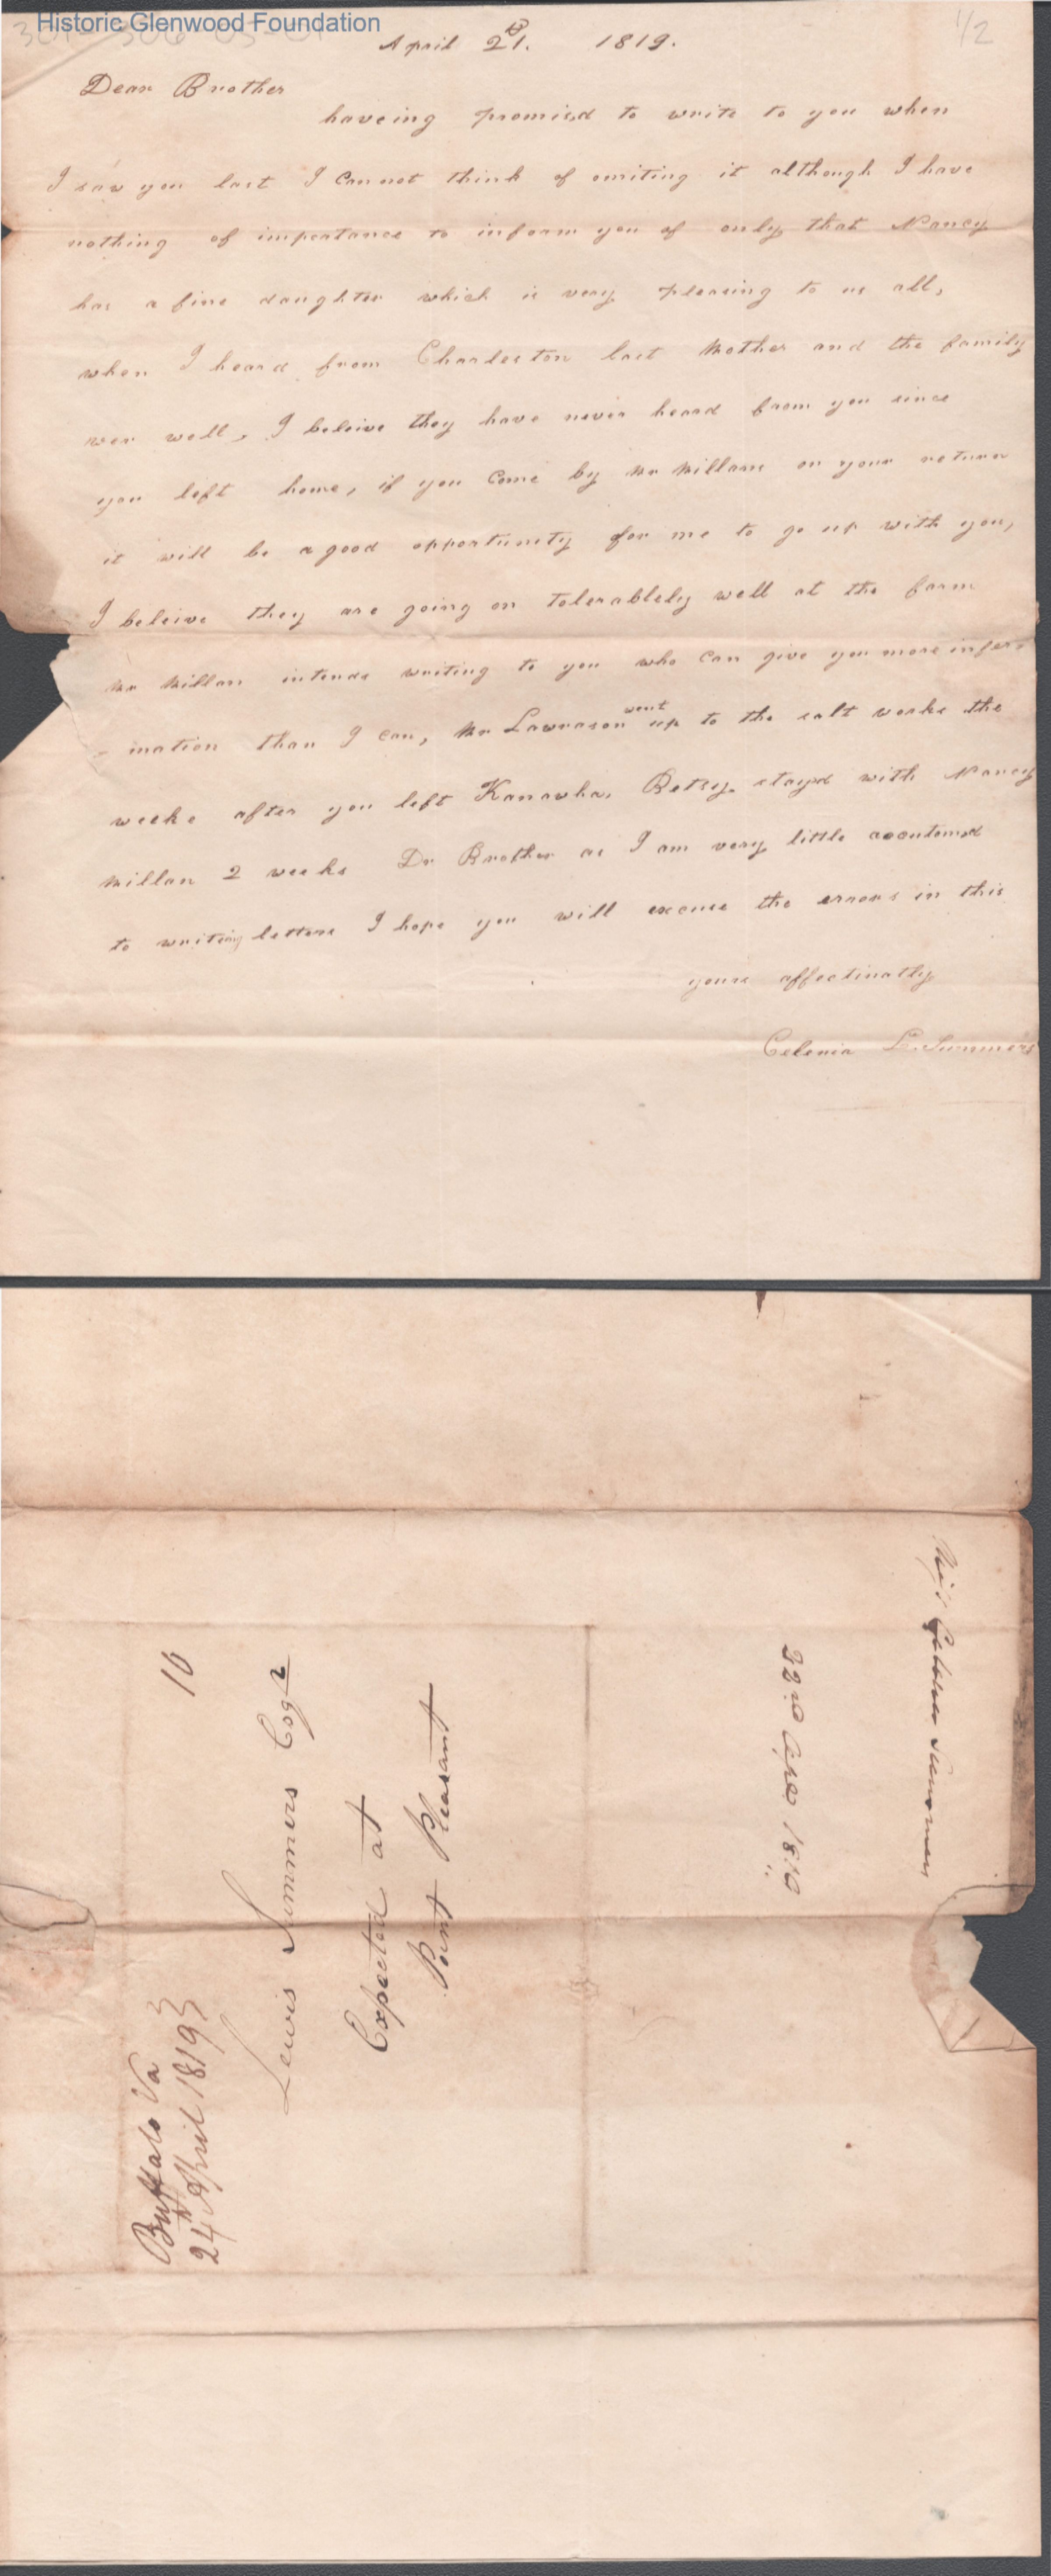 Historic Glenwood Foundation
1/2
April 21. 1819.
Dear Brother
haveing promisd to write to you when
I saw you last I cannot think of omiting it although I have
nothing of importance to inform you of only that Nancy
has a fine daughter which is very pleasing to us all,
when I heard from Charleston last Mother and the family
wer well, I beleive they have never heard from you since
you left home, if you come by Mr Millans on your return
it will be a good opportunity for me to go up with you,
I beleive they are going on tolerablely well at the farm
Mr Millan intends writing to you who can give you more infor-
-mation than I can, Mr Lawrason went up to the salt works the
weeke after you left Kanawha. Betsy stayd with Nancy
Millan 2 weeks Dr Brother as I am very little acoutomd
to writing letters I hope you will excuse the errors in this
yours affectinatly
Celenia L. Summers
Summers
22nd Apl 1819
10
Lewis Summers Esqr
Expected at
Point Pleasant
Buffalo Va
24th April 1819